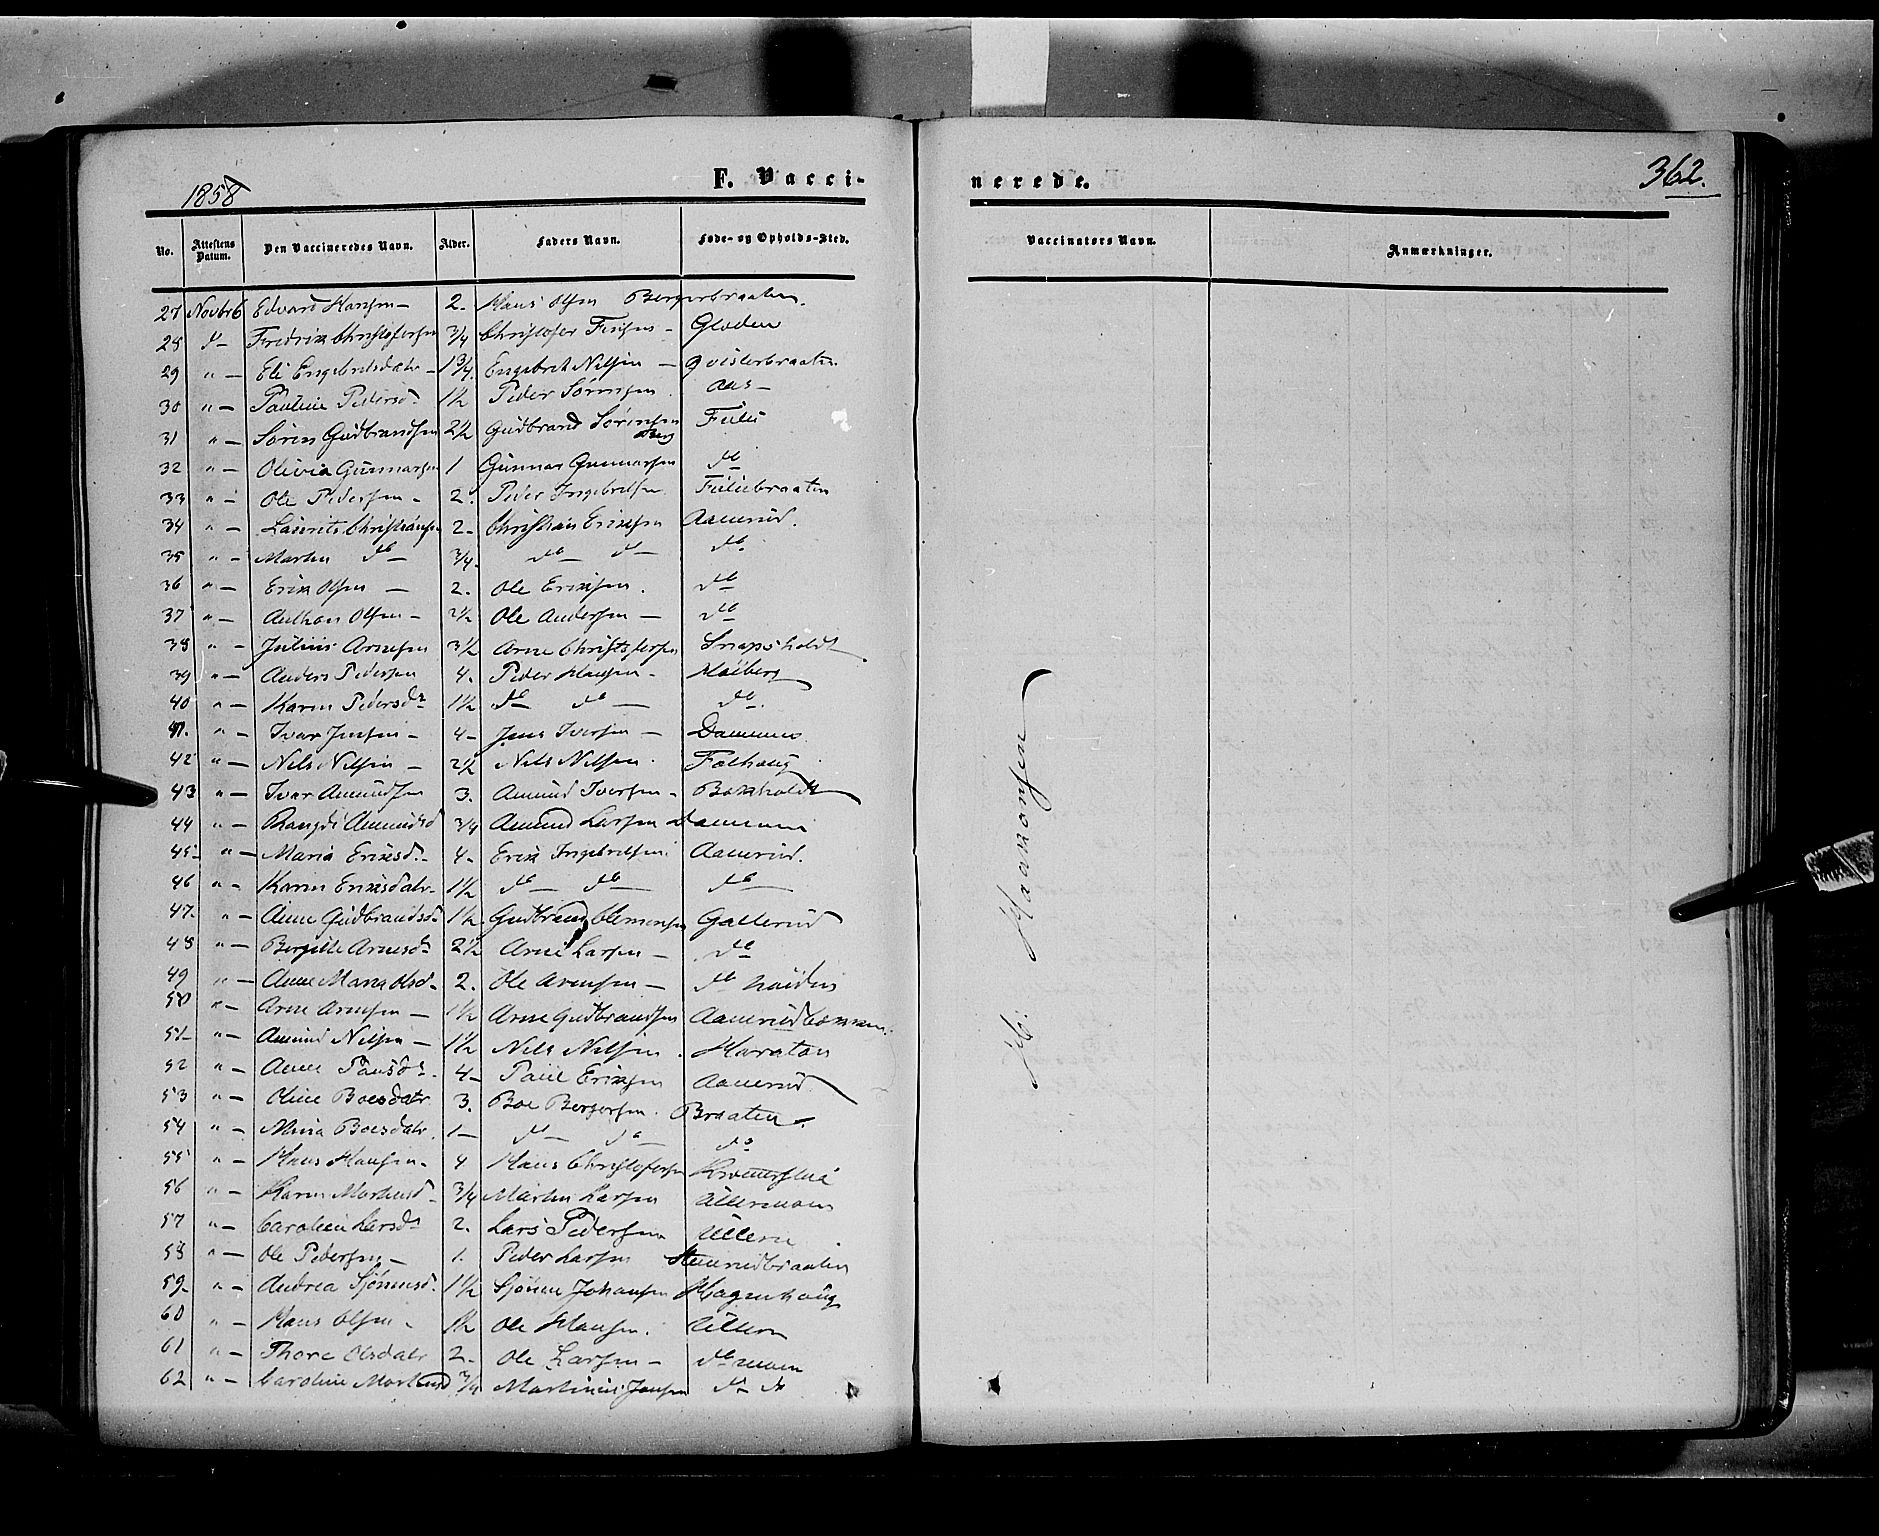 1858
F. Vacci-
nerede.
362.
No. Attestens Datum. Den Vaccineredes Navn. Alder. Faders Navn. Føde- og Opholds-Sted.
Vaccinatørs Navn. Anmærkninger.
27 Novbr 6 Edvard Hansen - 2. Hans Olsen Bergerbraaten.
28 do - Fredrik Christofersen 3/4 Christofer
29 " - Eli Engebretsdatr - 1 3/4. Engebret Nilsen - Qvisterbraaten
30 " - Pauline Pedersd. 1 1/2 Peder Sørensen. Aas -
31 " - Søren Gudbrandsen 2 1/2 Gudbrand Sørensen
32 " - Olivia Gunnarsen 1 Gunnar Gunnarsen do
33 " - Ole Pedersen - 2. Peder Ingebretsen.
34 " - Laurits Christiansen 2 - Christian Eriksen Aamrud.
35 " - Martin do - 3/4. do - do - do.
36 " - Erik Olsen - 2. Ole Eriksen. do
37 " - Anthon Olsen - 2 1/2 Ole Andersen - do
38 " - Julius Arnesen 3 1/2 Arne Christofersen Snapsholdt
39 " - Anders Pedersen 4. Peder Hansen - Høiberg
40 " - Karen Pedersdr 1 1/2 do do - do.
41. " - Ivar Jensen - 4 - Jens Iversen - Dammen
42 " - Nils Nilsen - 2 1/2 Nils Nilsen.
43 " - Ivar Amundsen 3. Amund Iversen -
44 " - Rangdi Amundsd 3/4 Amund Larsen Dammen
45 - " - Maria Eriksd. - 4 - Erik Ingebretsen Aamrud.
46 " - Karen Eriksdatr - 1 1/2 do - do - do -
47. " - Anne Gudbrandsd. 1 1/2. Gudbrand Clemensen Gallerud
48 " - Bergitte Arnesdr 2 1/2 Arne Larsen - do
49 " - Anne Maria Olsd - 2. Ole Arnesen - do
50 " - Arne Arnesen - 1 1/2 Arne Gudbrandsen
51 - " - Amund Nilsen - 1 1/2 Nils Nilsen. Haraton
52 " - Anne Paulsdr. 4 - Paul Eriksen Aamrud
53 " - Oline Boesdatr 3. Boe Bergersen. Braaten.
54 " - Mina Boesdatr. 1 - do - do - do
55 " - Hans Hansen. 4 Hans Christofersen
56 " - Karen Martinsd - 3/4 Martin Larsen Ullernmoen
57 " - Caroline Larsdr 2. Lars Pedersen Ullern
58 " - Ole Pedersen - 1. Peder Larsen
59 - " - Andrea Sjørensd. 1 1/2 Sjøren Johansen Hagenhaug
60 " - Hans Olsen - 1 1/2 Ole Hansen. Ullern
61 " - Thore Olsdatr 2 - Ole Larsen - do moen
62 " - Caroline Martinsd 3/4 Martinius Jansen do do
H. Haakonsen